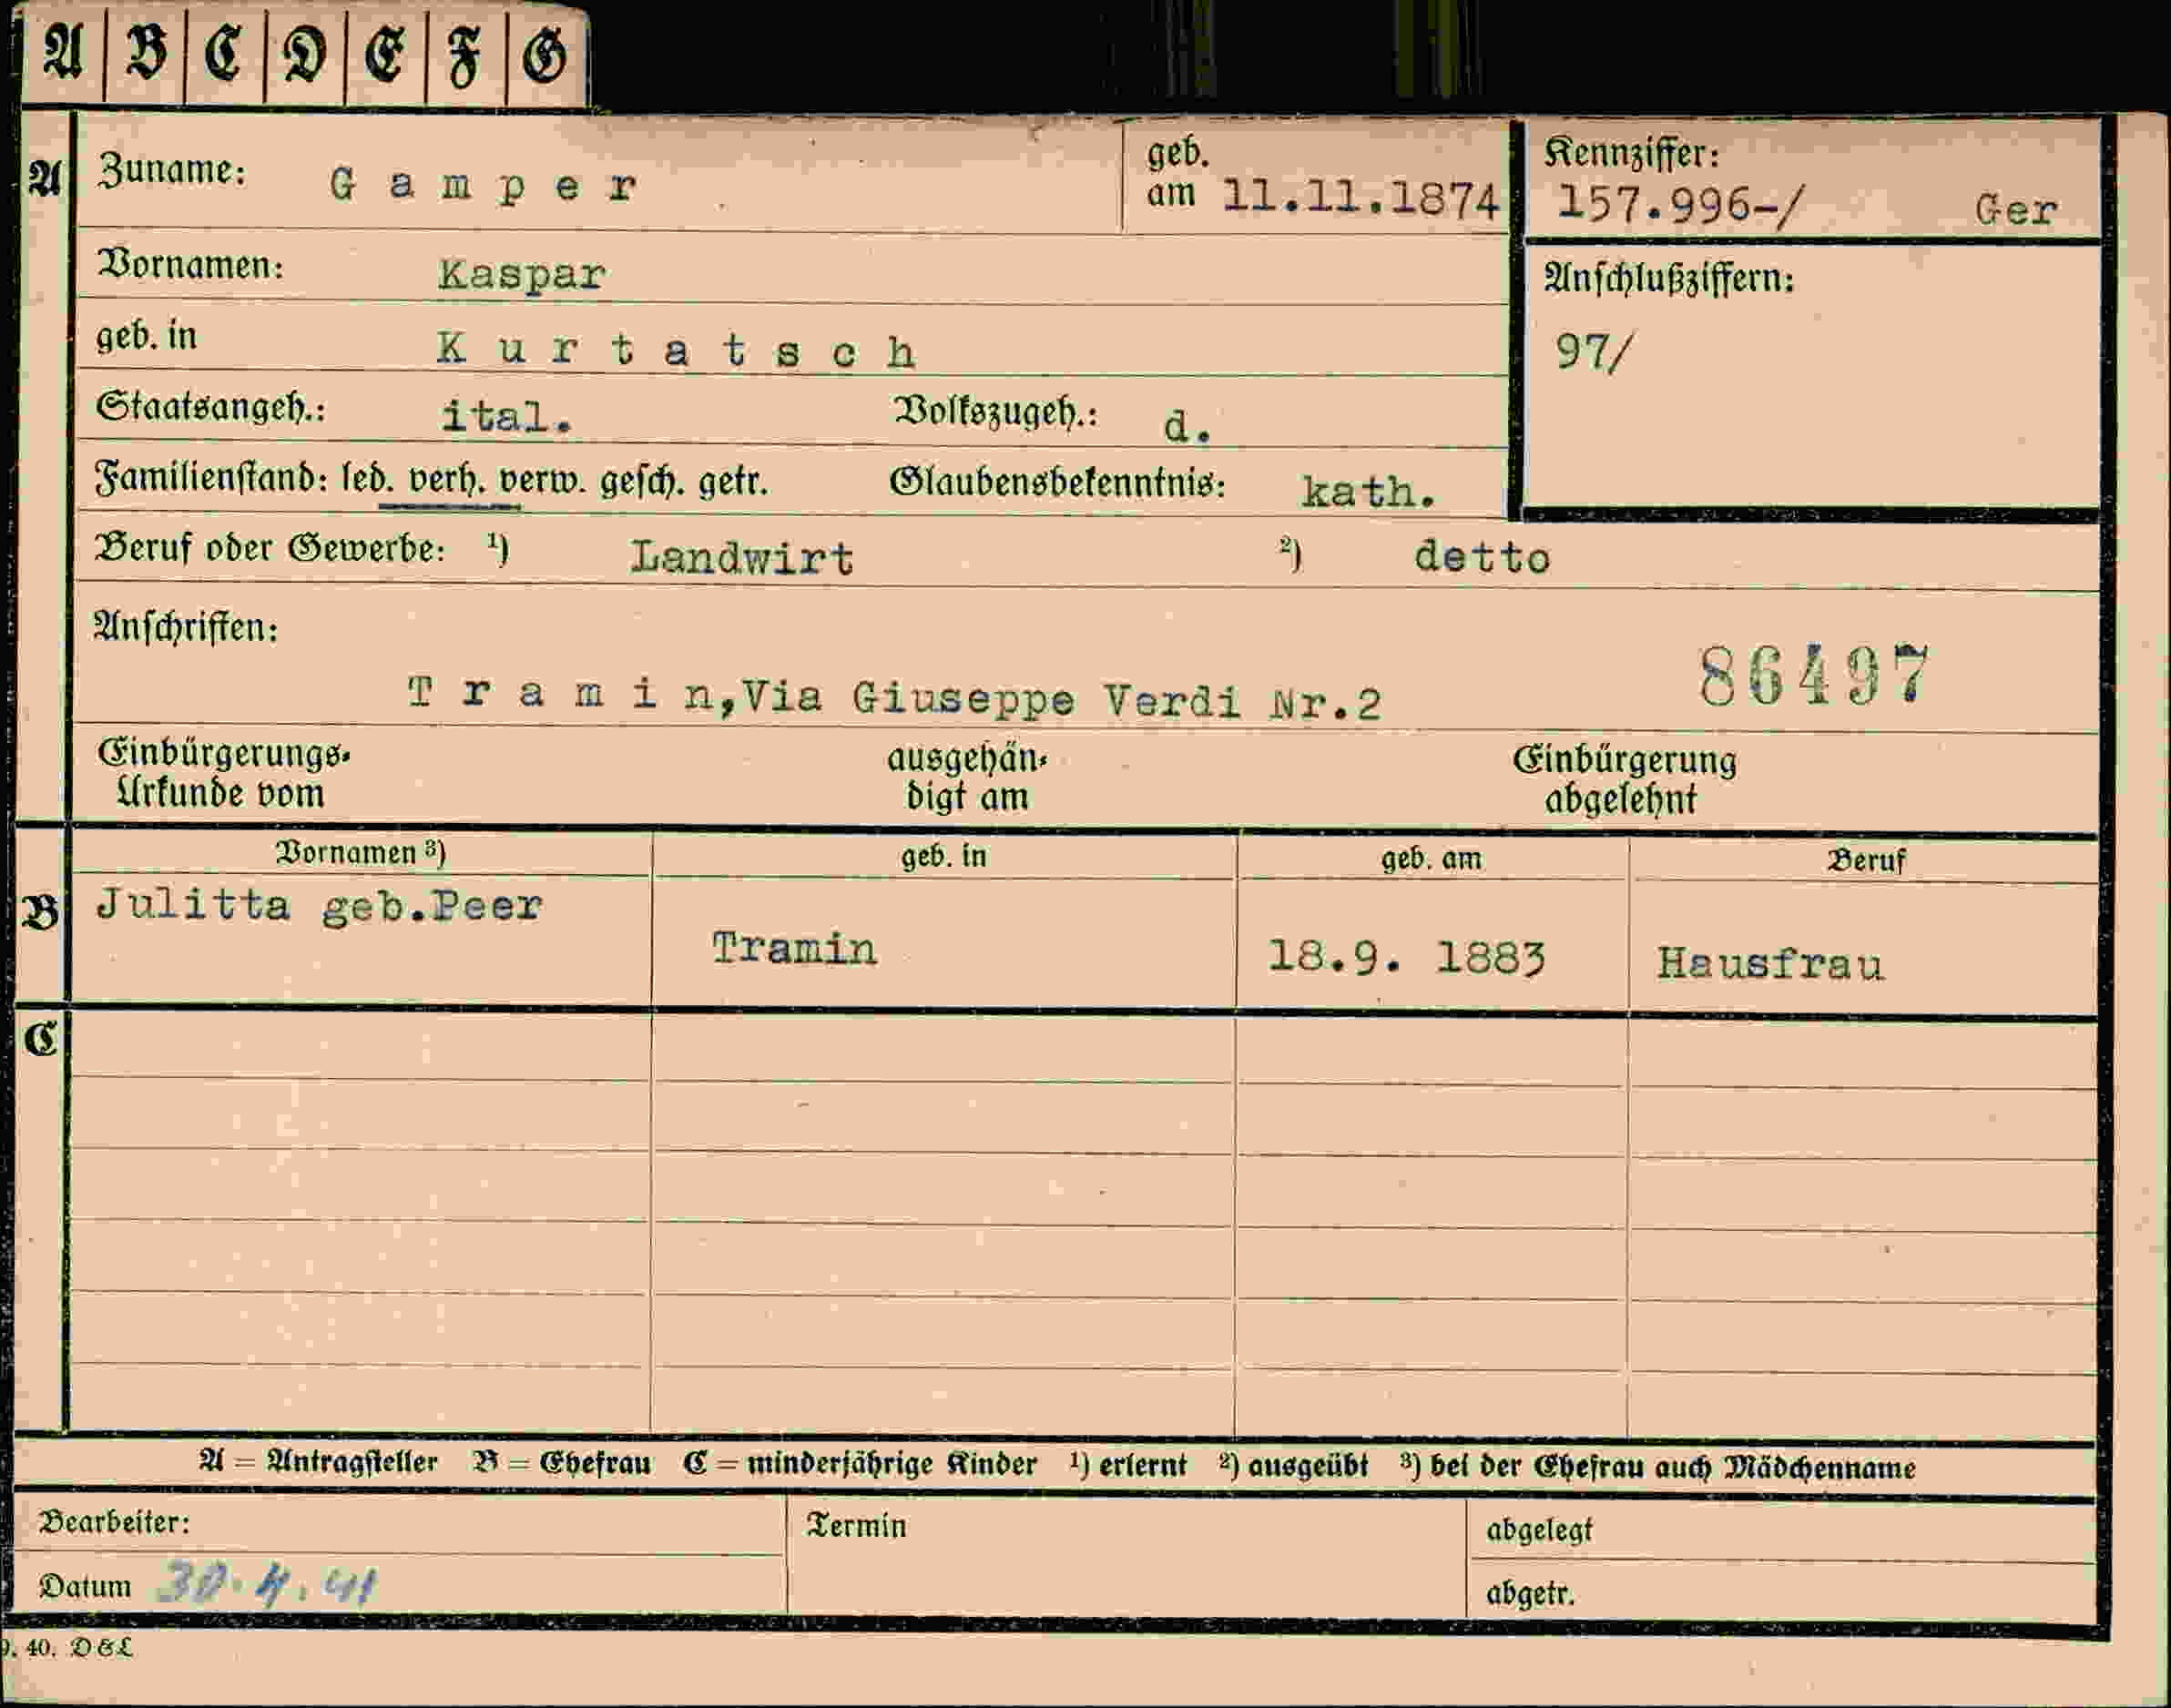 A B C D E F G
A Zuname: Gamper geb. am 11.11.1874 Kennziffer: 157.996-/ Ger
Vornamen: Kaspar Anschlußziffern:
geb. in Kurtatsch 97/
Staatsangeh.: ital. Volkszugeh.: d.
Familienstand: led. verh. verw. gesch. getr. Glaubensbekenntnis: kath.
Beruf oder Gewerbe: ¹) Landwirt ²) detto
Anschriften:
Tramin,Via Giuseppe Verdi Nr.2 86497
Einbürgerungs- ausgehän- Einbürgerung
Urkunde vom digt am abgelehnt
Vornamen ³) geb. in geb. am Beruf
B Julitta geb.Peer
Tramin 18.9. 1883 Hausfrau
C
A = Antragsteller B = Ehefrau C = minderjährige Kinder ¹) erlernt ²) ausgeübt ³) bei der Ehefrau auch Mädchenname
Bearbeiter: Termin abgelegt
Datum 30.4.41 abgetr.
9. 40. D&L